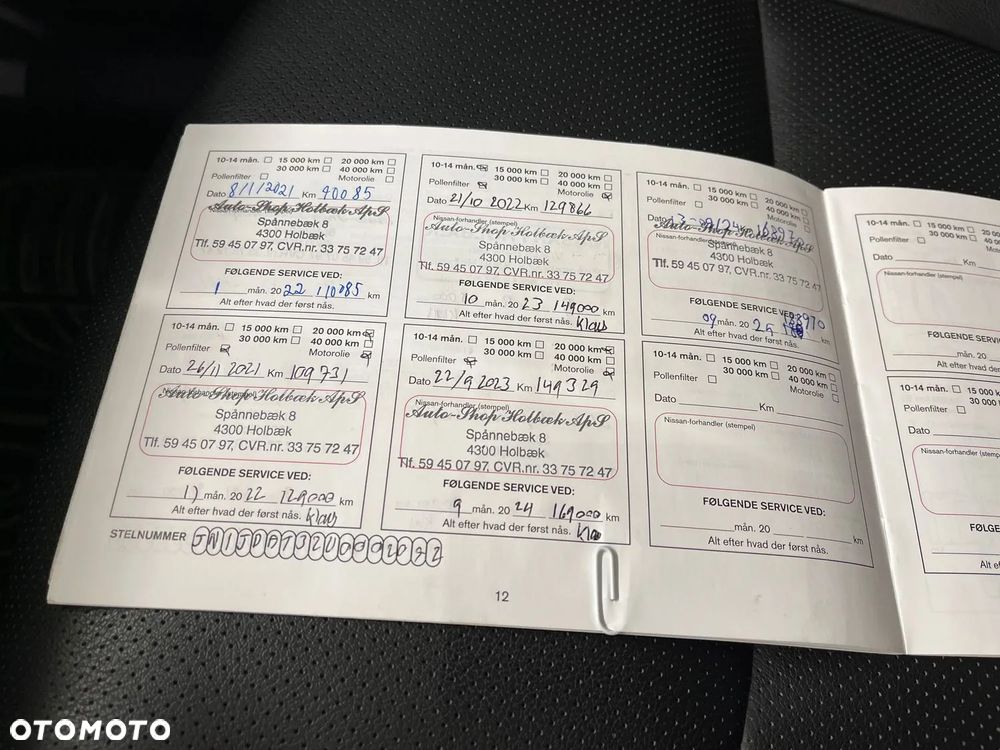 10-14 mån. 15 000 km 20 000 km
30 000 km 40 000 km
Pollenfilter Motorolie
Dato 8/1/2021 Km 90085
Auto-Shop Holbæk ApS
Spånnebæk 8
4300 Holbæk
Tlf. 59 45 07 97, CVR.nr. 33 75 72 47
FØLGENDE SERVICE VED:
1 mån. 20 22 110085 km
Alt efter hvad der først nås.
10-14 mån. 15 000 km 20 000 km
30 000 km 40 000 km
Pollenfilter Motorolie
Dato 26/11 2021 Km 109731
Auto-Shop Holbæk ApS
Spånnebæk 8
4300 Holbæk
Tlf. 59 45 07 97, CVR.nr. 33 75 72 47
FØLGENDE SERVICE VED:
mån. 20 22 129000 km
Alt efter hvad der først nås. Klaus
STELNUMMER
10-14 mån. 15 000 km 20 000 km
30 000 km 40 000 km
Pollenfilter Motorolie
Dato 21/10 2022 Km 129866
Nissan-forhandler (stempel)
Auto-Shop Holbæk ApS
Spånnebæk 8
4300 Holbæk
Tlf. 59 45 07 97, CVR.nr. 33 75 72 47
FØLGENDE SERVICE VED:
10 mån. 20 23 149000 km
Alt efter hvad der først nås. Klaus
10-14 mån. 15 000 km 20 000 km
30 000 km 40 000 km
Pollenfilter Motorolie
Dato 22/9 2023 Km 149329
Nissan-forhandler (stempel)
Auto-Shop Holbæk ApS
Spånnebæk 8
4300 Holbæk
Tlf. 59 45 07 97, CVR.nr. 33 75 72 47
FØLGENDE SERVICE VED:
9 mån. 20 24 169000 km
Alt efter hvad der først nås.
12
10-14 mån. 15 000 km 20 000 km
30 000 km 40 000 km
Pollenfilter Motorolie
Dato
Auto-Shop Holbæk ApS
Nissan-forhandler (stempel)
Spånnebæk 8
4300 Holbæk
Tlf. 59 45 07 97, CVR.nr. 33 75 72 47
FØLGENDE SERVICE VED:
09 mån. 20 km
Alt efter hvad der først nås.
10-14 mån. 15 000 km 20 000 km
30 000 km 40 000 km
Pollenfilter Motorolie
Dato Km
Nissan-forhandler (stempel)
FØLGENDE SERVICE VED:
mån. 20 km
Alt efter hvad der først nås.
10-14 mån. 15 000 km
30 000 km
Pollenfilter
Dato Km
Nissan-forhandler (stempel)
mån. 20
Alt efter hvad
10-14 mån. 15 000 km
30 000 km
Pollenfilter
Dato
Nissan-forhandler (stempel)
mån.
OTOMOTO